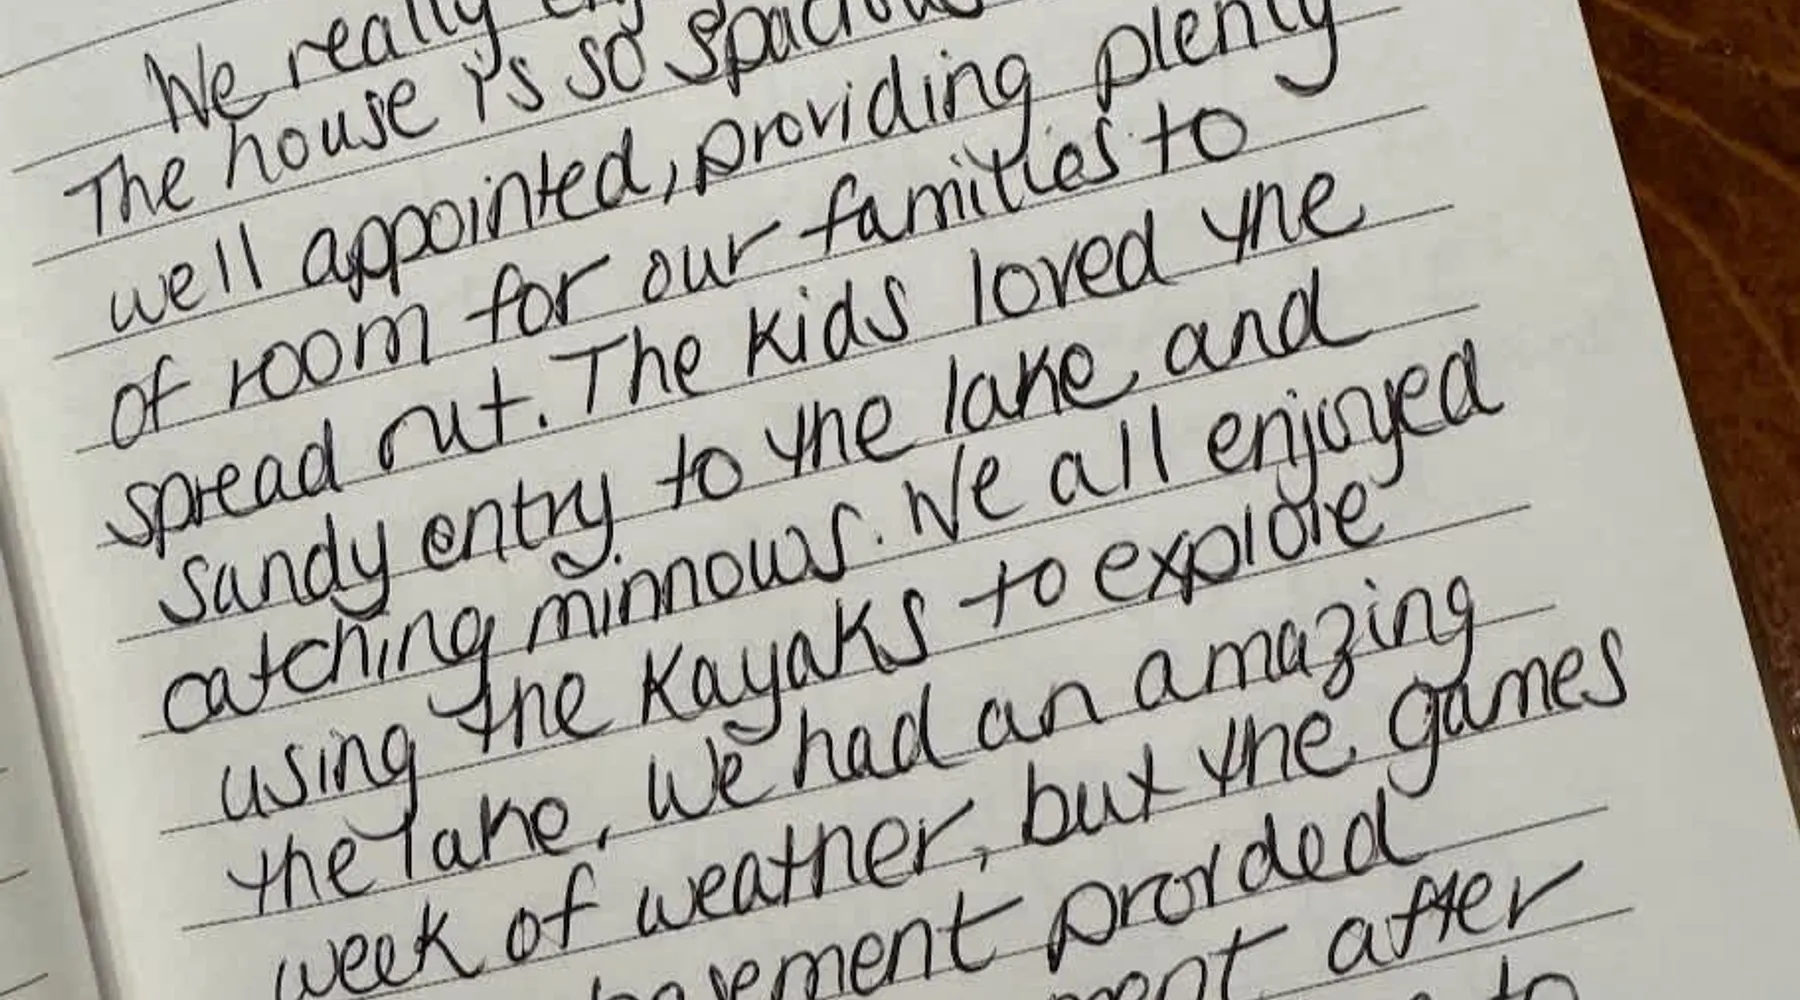 We really
The house is so spacious
well appointed, providing plenty
of room for our families to
spread out. The kids loved the
sandy entry to the lake and
catching minnows. We all enjoyed
using the kayaks to explore
the lake. We had an amazing
week of weather, but the games
basement provided
after
to